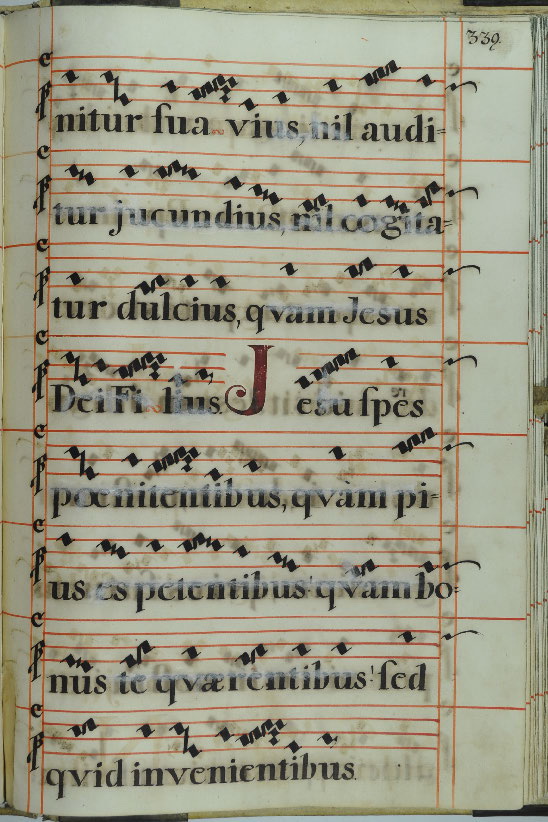 339.
nitur sua vius, nil audi=
tur jucundius, nil cogita=
tur dulcius, qvam Jesus
Dei Filius. Jesu spes
pœnitentibus, qvàm pi=
us es petentibus! qvam bo=
nus te qværentibus! sed
qvid invenientibus.